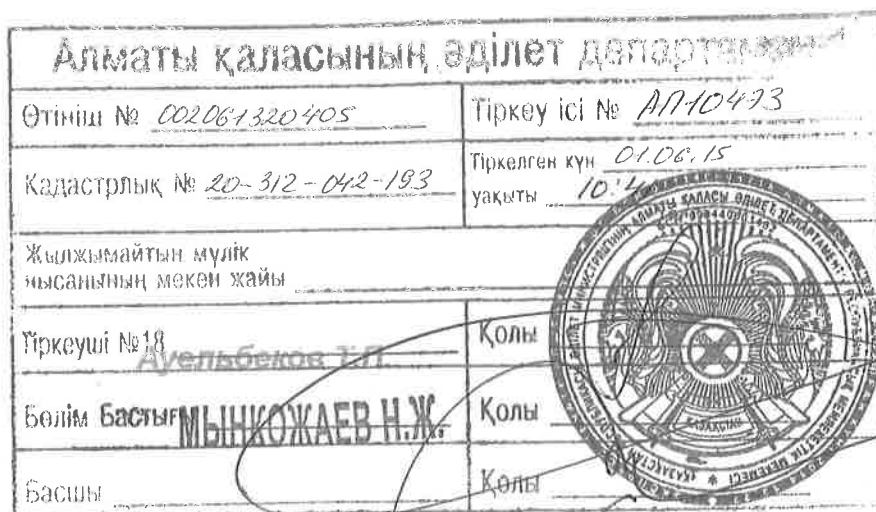 Алматы қаласының әділет департаменті
Өтініш № 002061320405
Тіркеу ісі № АП10473
Кадастрлық № 20-312-042-193
Тіркелген күн 01.06.15
уақыты 10:4
Жылжымайтын мүлік
нысанының мекен жайы
Тіркеуші №18
Ауельбеков Т.П.
Қолы
Бөлім Бастығы МЫНКОЖАЕВ Н.Ж.
Қолы
Басшы
Қолы
АЛМАТЫ ҚАЛАСЫ ӘДІЛЕТ ДЕПАРТАМЕНТІ
ҚАЗАҚСТАН